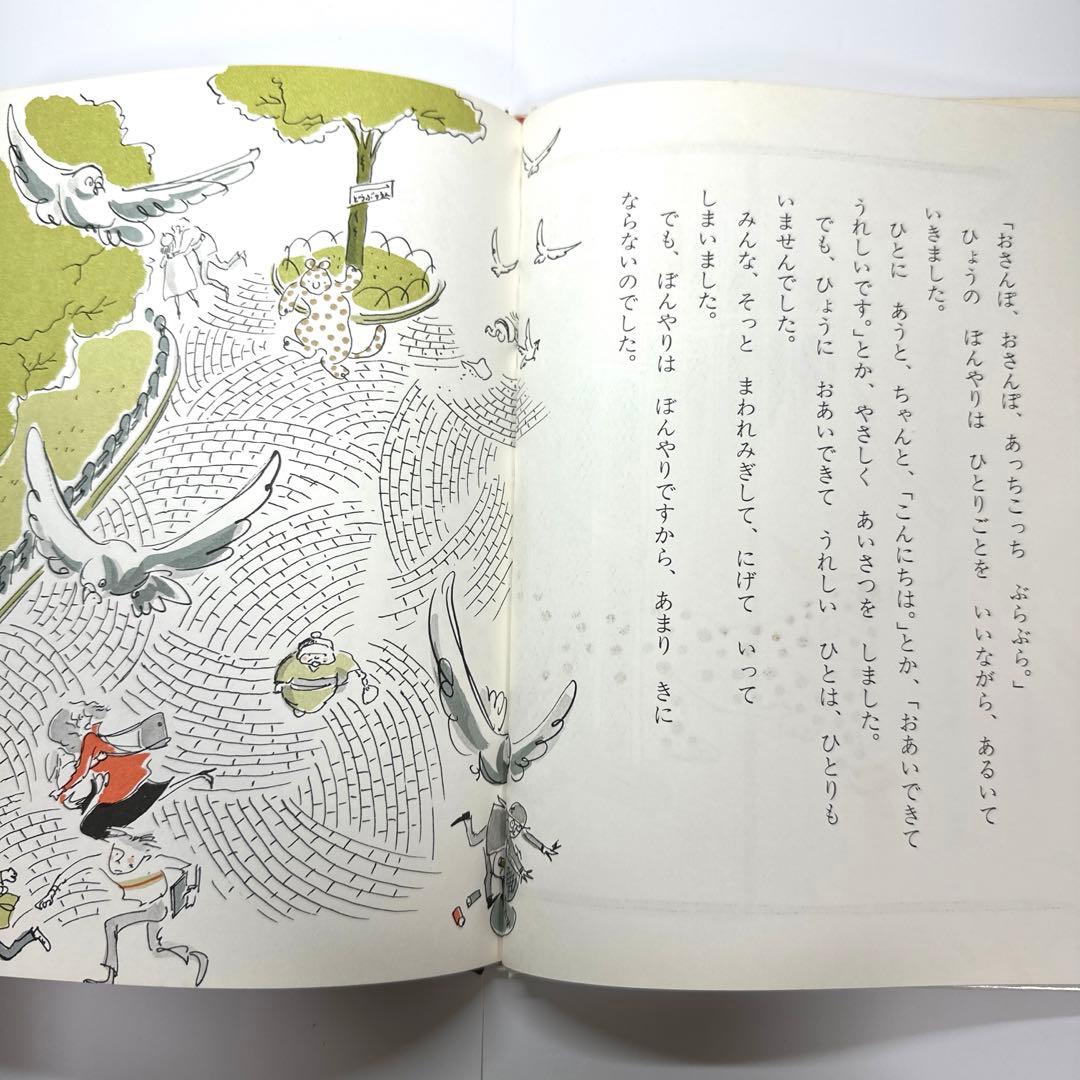 「おさんぽ、おさんぽ、あっちこっち　ぶらぶら。」
ひょうの　ぼんやりは　ひとりごとを　いいながら、あるいて
いきました。
ひとに　あうと、ちゃんと、「こんにちは。」とか、「おあいできて
うれしいです。」とか、やさしく　あいさつを　しました。
でも、ひょうに　おあいできて　うれしい　ひとは、ひとりも
いませんでした。
みんな、そっと　まわれみぎして、にげて　いって
しまいました。
でも、ぼんやりは　ぼんやりですから、あまり　きに
ならないのでした。
どうぶつえん